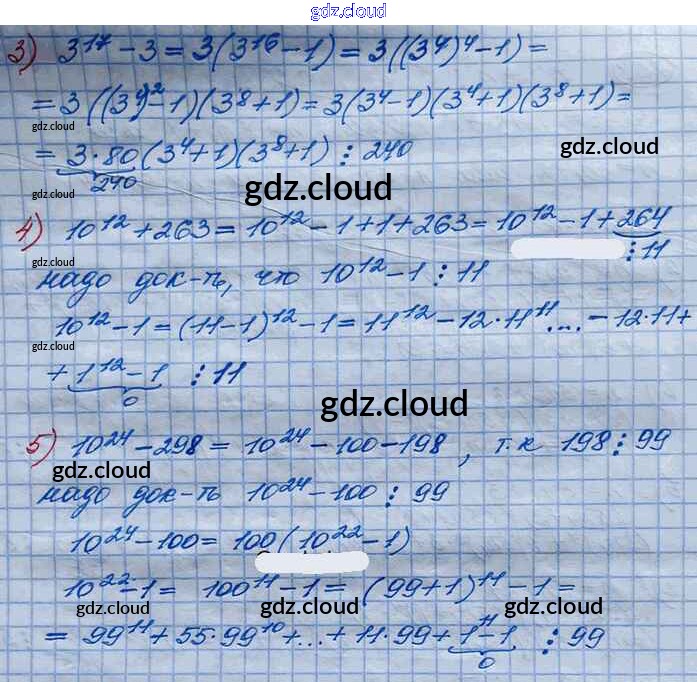 gdz.cloud
3) 3¹⁷ - 3 = 3(3¹⁶ - 1) = 3((3⁴)⁴ - 1) =
= 3((3⁴)² - 1)(3⁸ + 1) = 3(3⁴ - 1)(3⁴ + 1)(3⁸ + 1) =
gdz.cloud
= 3·80(3⁴ + 1)(3⁸ + 1) ⋮ 240
gdz.cloud
240
gdz.cloud
gdz.cloud
4) 10¹² + 263 = 10¹² - 1 + 1 + 263 = 10¹² - 1 + 264
⋮ 11
gdz.cloud
надо док-ть, что 10¹² - 1 ⋮ 11
10¹² - 1 = (11 - 1)¹² - 1 = 11¹² - 12·11¹¹ .... - 12·11 +
gdz.cloud
+ 1¹² - 1 ⋮ 11
0
gdz.cloud
5) 10²⁴ - 298 = 10²⁴ - 100 - 198, т.к 198 ⋮ 99
gdz.cloud
gdz.cloud
надо док-ть 10²⁴ - 100 ⋮ 99
10²⁴ - 100 = 100(10²² - 1)
10²² - 1 = 100¹¹ - 1 = (99 + 1)¹¹ - 1 =
gdz.cloud gdz.cloud gdz.cloud
= 99¹¹ + 55·99¹⁰ + ... + 11·99 + 1¹¹ - 1 ⋮ 99
0